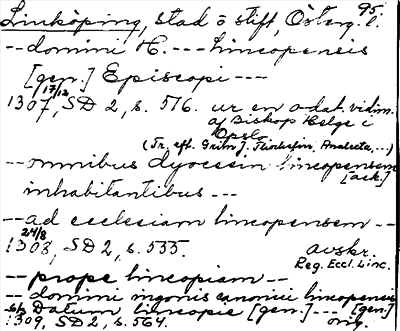 95.
Linköping, stad o stift, Österg. l.
-- domini K. --- lincopensis
[gen.] Episcopi ----
17/12
1307, SD 2, s. 516. ur en odat. vidim.
af Biskop Helge i
Opslo
(Tr. eft. Grim J. Thorkelin, Analecta, ...)
-- omnibus dyocesin lincopensem
[ack.]
inhabitantibus ---
-- ad ecclesiam lincopensem --
24/8
1308, SD 2, s. 535. avskr.
Reg. Eccl. Linc.
-- prope lincopiam --
-- domini canonici lincopensis
Datum lincopie [gen.] --- [gen.]
1309, SD 2, s. 564. orig.